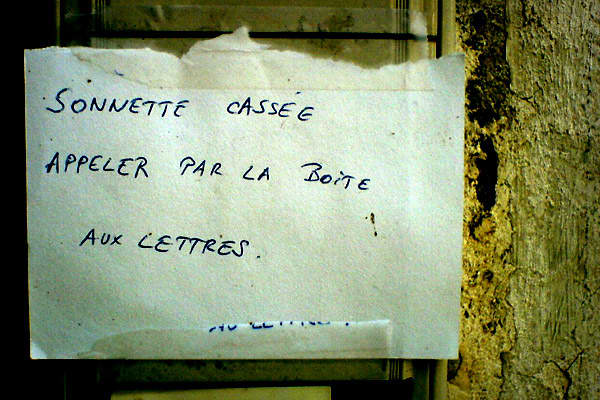 SONNETTE CASSÉE
APPELER PAR LA BOiTE
AUX LETTRES.